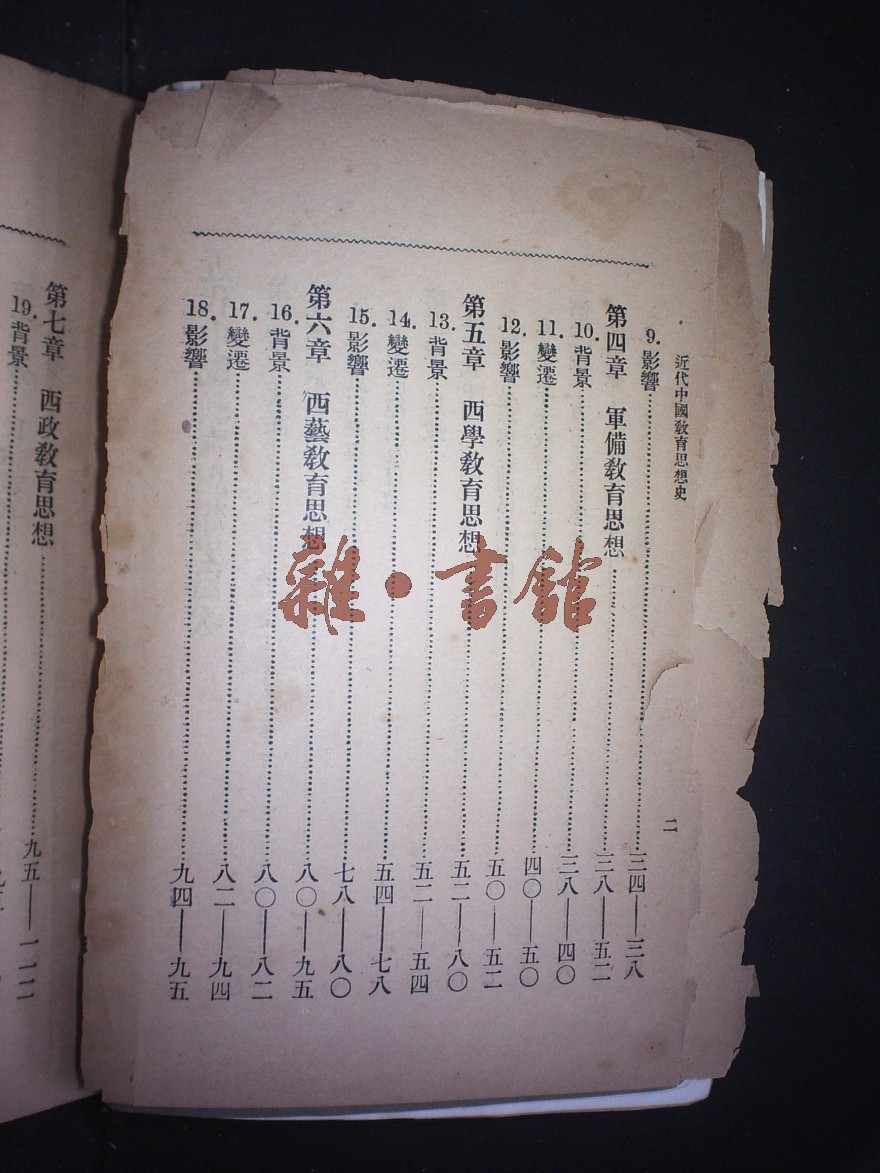 近代中國教育思想史
二
9. 影響……三四——三八
第四章 軍備教育思想……三八——五二
10. 背景……三八——四〇
11. 變遷……四〇——五〇
12. 影響……五〇——五二
第五章 西學教育思想……五二——八〇
13. 背景……五二——五四
14. 變遷……五四——七八
15. 影響……七八——八〇
第六章 西藝教育思想……八〇——九五
16. 背景……八〇——八二
17. 變遷……八二——九四
18. 影響……九四——九五
第七章 西政教育思想……九五——一一二
19. 背景……
雜·書館